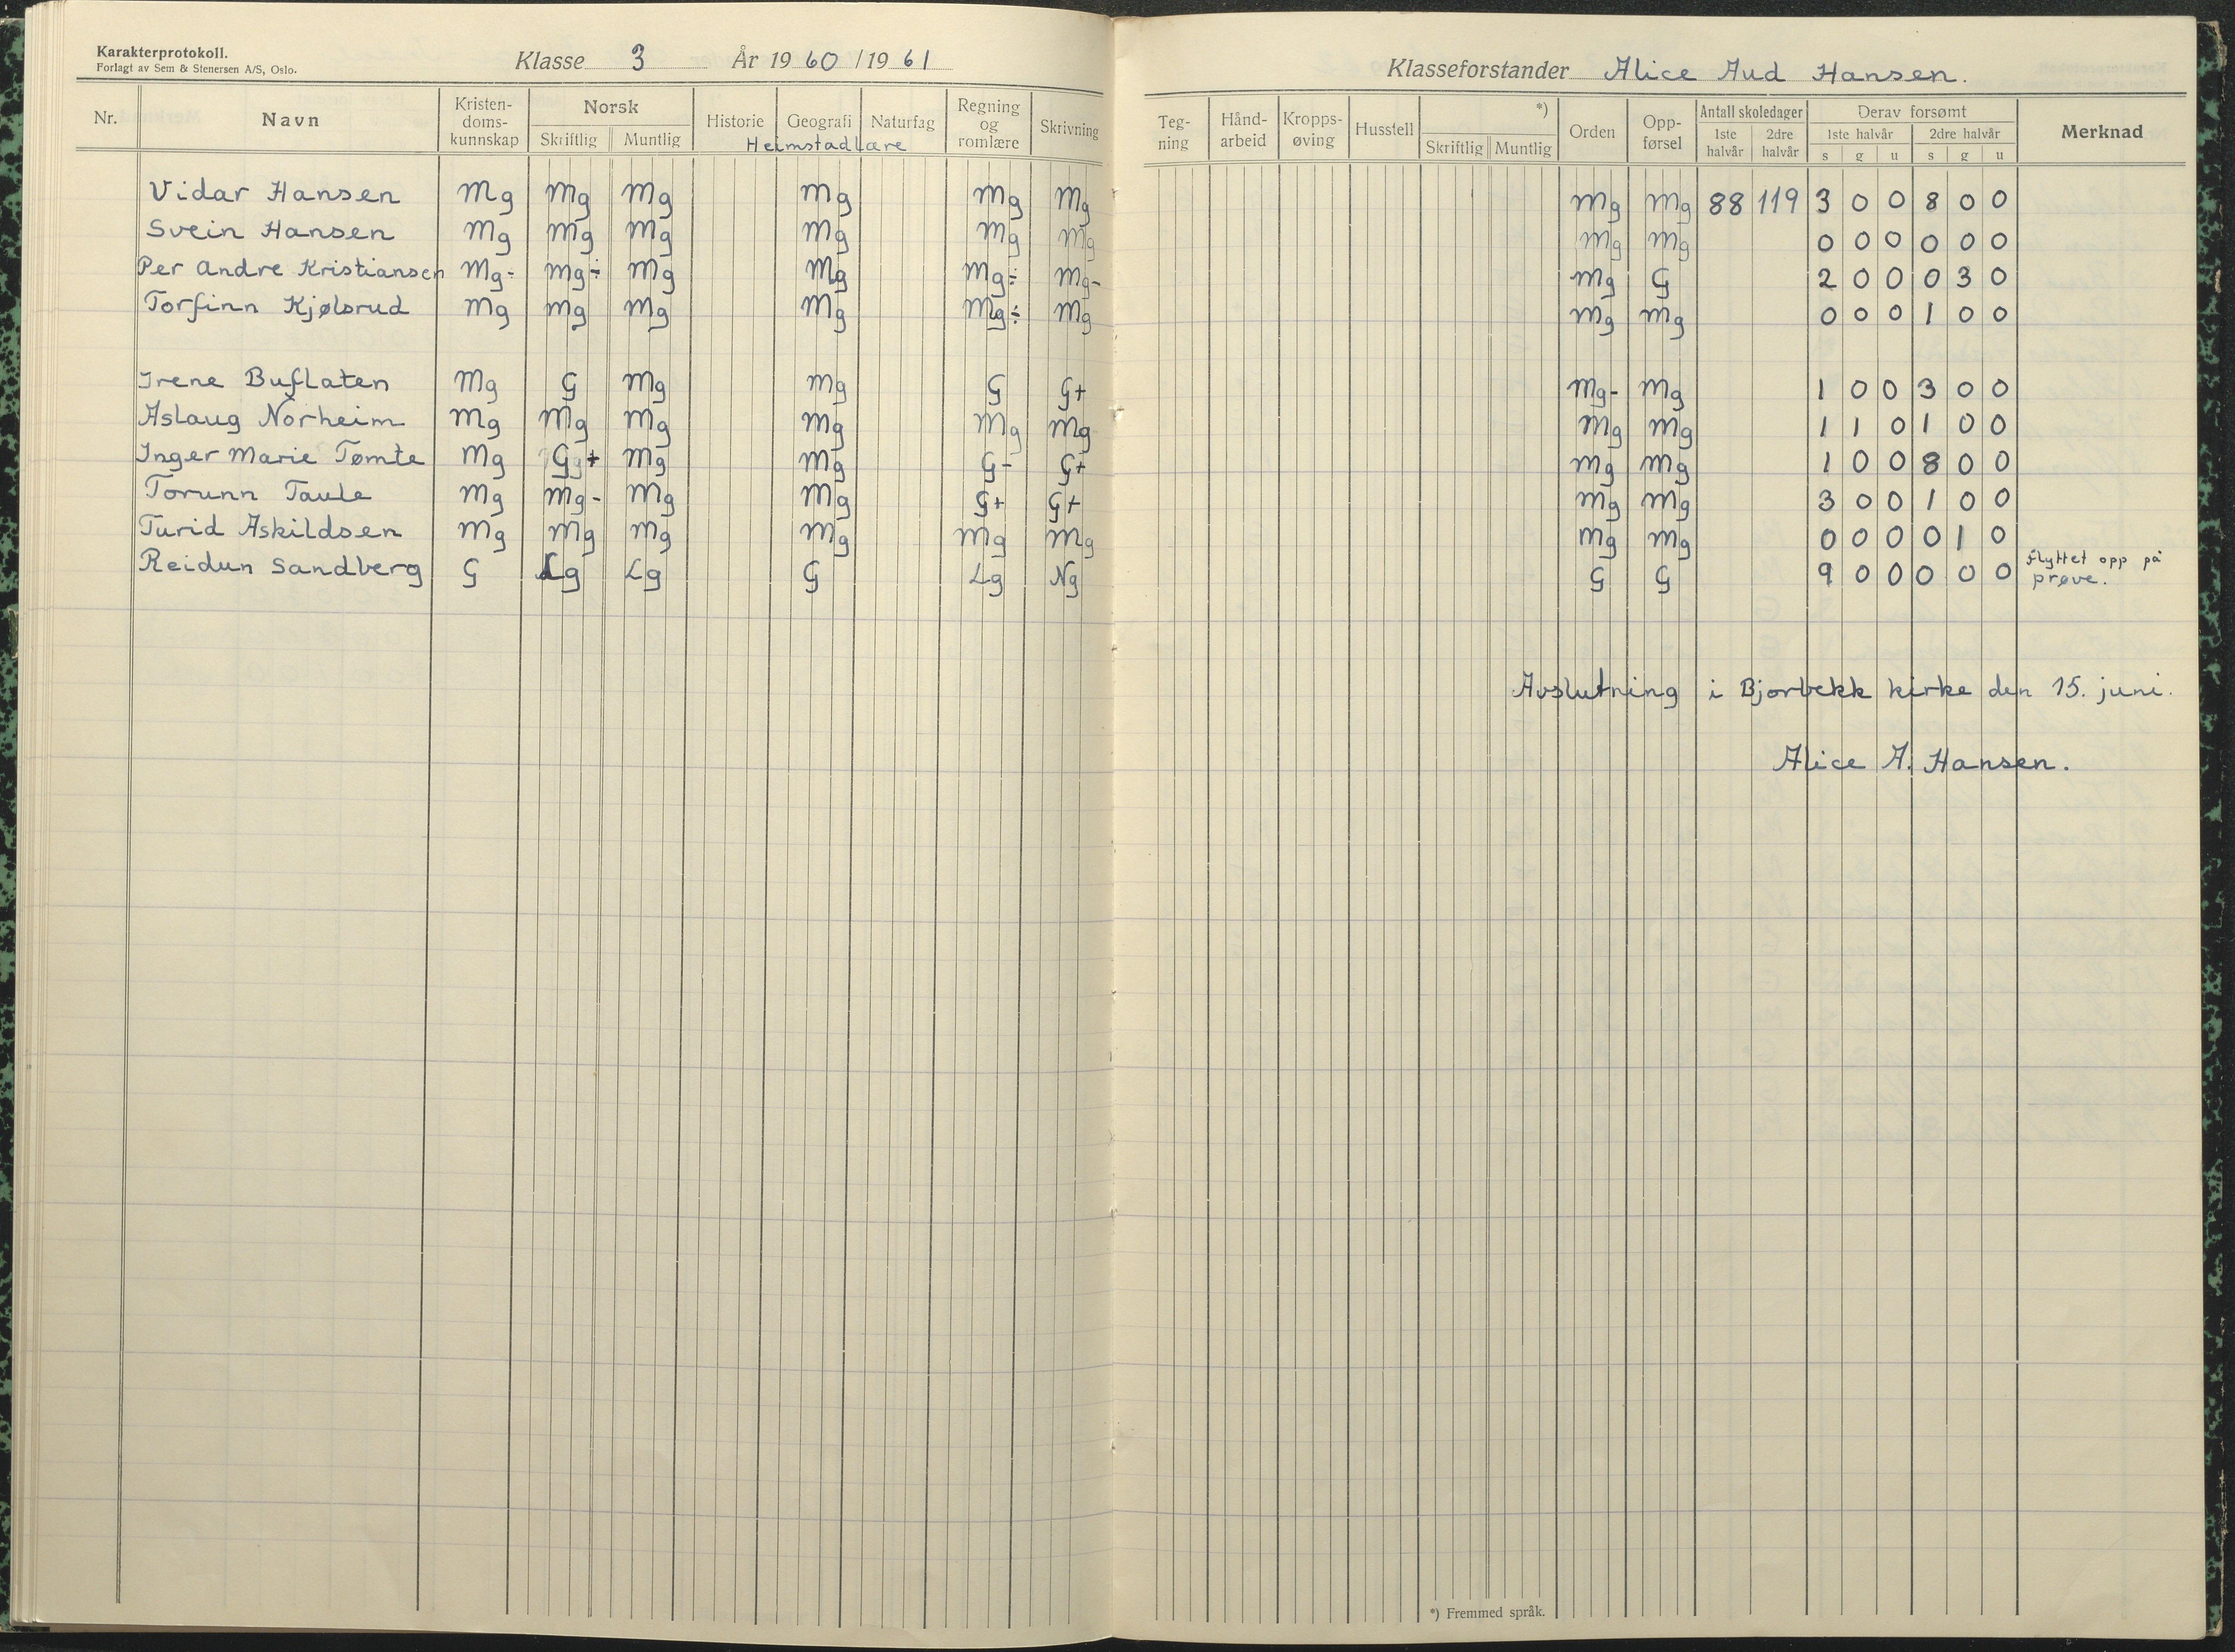 Karakterprotokoll.
Forlagt av Sem & Stenersen A/S, Oslo.
Klasse 3 År 1960/1961
Klasseforstander Alice Aud Hansen.
Nr. Navn Kristendomskunnskap Norsk Skriftlig Muntlig Historie Geografi Naturfag Regning og romlære Skrivning
Heimstadlære
Tegning Håndarbeid Kroppsøving Husstell *) Skriftlig Muntlig Orden Oppførsel Antall skoledager 1ste halvår 2dre halvår Derav forsømt 1ste halvår s g u 2dre halvår s g u Merknad
Vidar Hansen Mg Mg Mg Mg Mg Mg Mg Mg 88 119 3 0 0 8 0 0
Svein Hansen Mg Mg Mg Mg Mg Mg Mg Mg 0 0 0 0 0 0
Per Andre Kristiansen Mg÷ Mg÷ Mg Mg Mg÷ Mg- Mg G 2 0 0 0 3 0
Torfinn Kjølsrud Mg Mg Mg Mg Mg÷ Mg Mg Mg 0 0 0 1 0 0
Irene Buflaten Mg G Mg Mg G G+ Mg- Mg 1 0 0 3 0 0
Aslaug Norheim Mg Mg Mg Mg Mg Mg Mg Mg 1 1 0 1 0 0
Inger Marie Tømte Mg G+ Mg Mg G- G+ Mg Mg 1 0 0 8 0 0
Torunn Taule Mg Mg- Mg Mg G+ G+ Mg Mg 3 0 0 1 0 0
Turid Askildsen Mg Mg Mg Mg Mg Mg Mg Mg 0 0 0 0 1 0
Reidun Sandberg G Lg Lg G Lg Ng G G 9 0 0 0 0 0 Flyttet opp på
prøve.
Avslutning i Bjorbekk kirke den 15. juni.
Alice A. Hansen.
*) Fremmed språk.